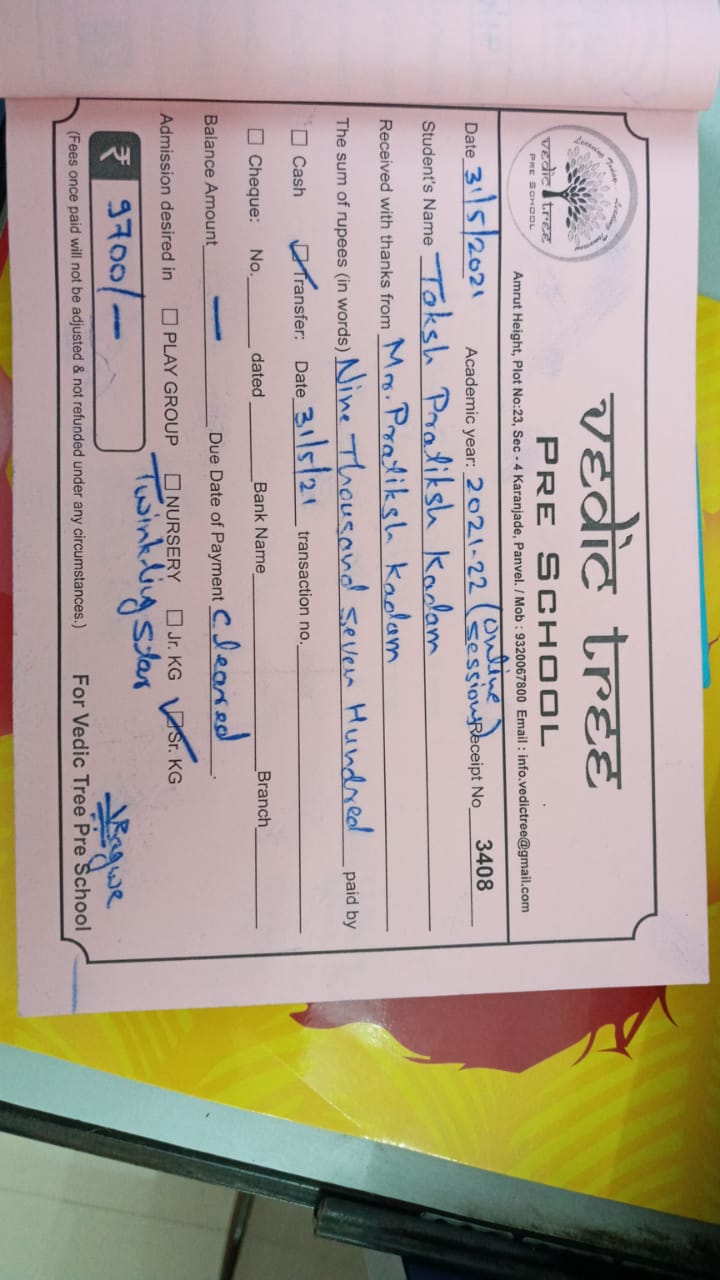 vedic tree
PRE SCHOOL
vedic tree
PRE SCHOOL
Amrut Height, Plot No:23, Sec - 4 Karanjade, Panvel. / Mob : 9320067800 Email : info.vedictree@gmail.com
Date 31/5/2021 Academic year: 2021-22 (online session) Receipt No 3408
Student's Name Taksh Pratiksh Kadam
Received with thanks from Mr. Pratiksh Kadam
The sum of rupees (in words) Nine Thousand Seven Hundred paid by
☐ Cash ☑ Transfer: Date 31/5/21 transaction no.
☐ Cheque: No. dated Bank Name Branch
Balance Amount — Due Date of Payment Cleared.
Admission desired in ☐ PLAY GROUP ☐ NURSERY ☐ Jr. KG ☑ Sr. KG
Twinkling Star
₹ 9700/—
(Fees once paid will not be adjusted & not refunded under any circumstances.) For Vedic Tree Pre School